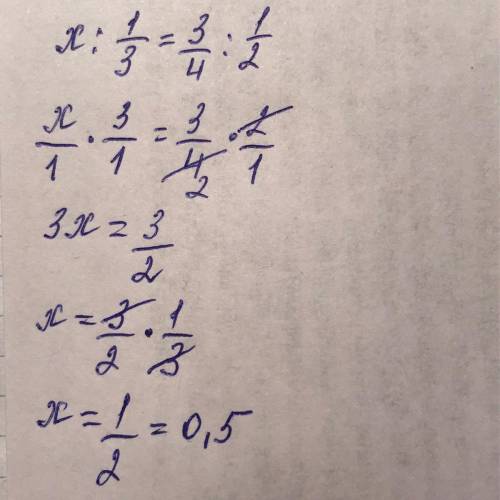 x : 1/3 = 3/4 : 1/2
x/1 · 3/1 = 3/4 · 2/1
2
3x = 3/2
x = 3/2 · 1/3
x = 1/2 = 0,5